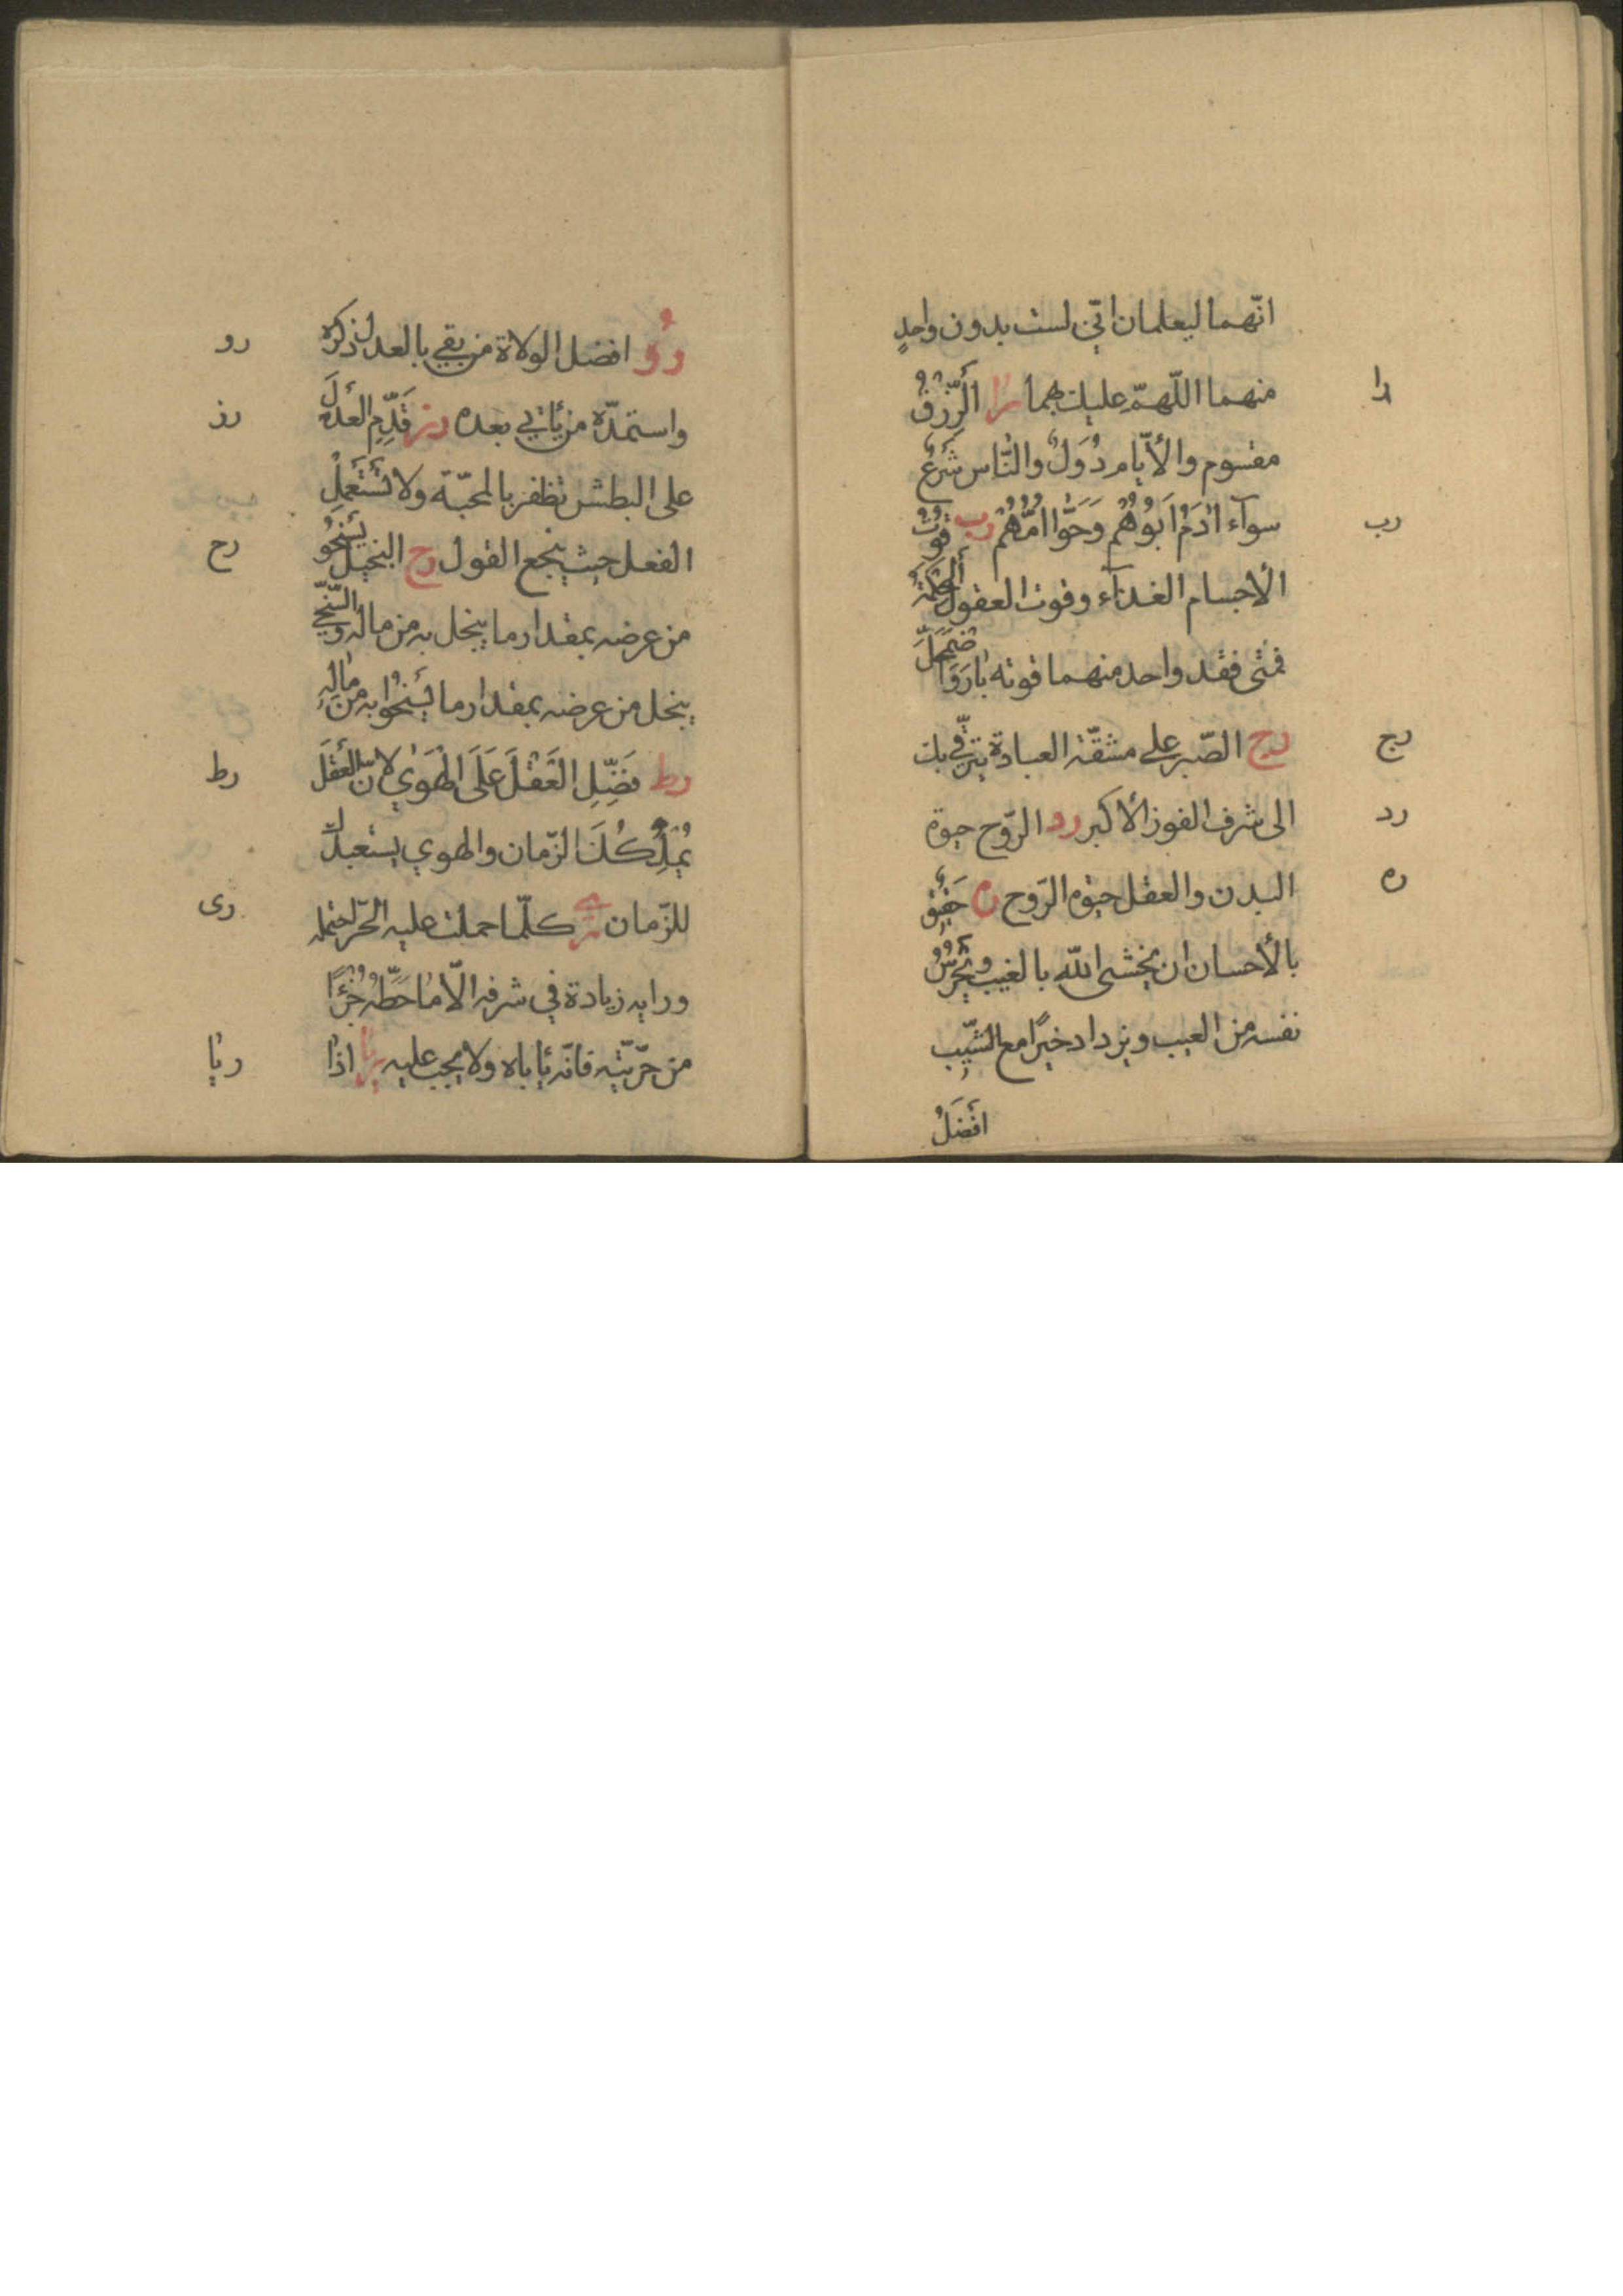 انّهما ليعلمان انّي لست بدون واحدٍ
منهما اللّهمّ عليك بهما را اَلرِّزْقُ
را
مقسوم والأيّام دُوَلٌ والنّاس شَرَعٌ
سوآء اٰدَمُ اَبُوْهُمْ وَحَوّٰا اُمُّهُمْ رب قُوْتُ
رب
الأجسام الغذآء وقوت العقول اَلْحِكْمَةُ
فمتى فقد واحد منهما قوته بٰارَ وَاضْمَحَلَّ
رج الصّبر على مشقّة العبادة يترقّي بك
رج
الى شرف الفوز الأكبر رد الرّوح حيوة
رد
البدن والعقل حيوة الرّوح ره حَقِيْقٌ
ره
بالأحسان ان يخشى اللّه بالغيب ويَحْرُسُ
نفسه من العيب ويزداد خيرًا مع الشّيب
اَفْضَلُ
رُو افضل الولاة من بقي بالعدل ذكره
رو
واستمدّه من يأتي بعده رز قَدِّمِ العَدْلَ
رز
على البطش تظفر بالمحبّة ولا تَسْتَعْمِلْ
الفعل حيث ينجع القول رح البخيل يَسْخُو
رح
من عرضه بمقدار ما يبخل به من ماله والسّخيّ
يبخل من عرضه بمقدار ما يَسْخُوا به من مٰالِهِ
رط فَضِّلِ الْعَقْلَ عَلَى الْهَوٰي لانّ العَقْلَ
رط
يُمَلِّكُكَ الزّمان والهوي يستعبدك
للزّمان ري كلّما حملت عليه الحرّ احتمله
رى
ورايه زيادة في شرفه الّا مٰا حَطَّهُ جُزْءًا
من حرّيّته فانّه يأباه ولا يجب عليه ريا اذٰا
ريا